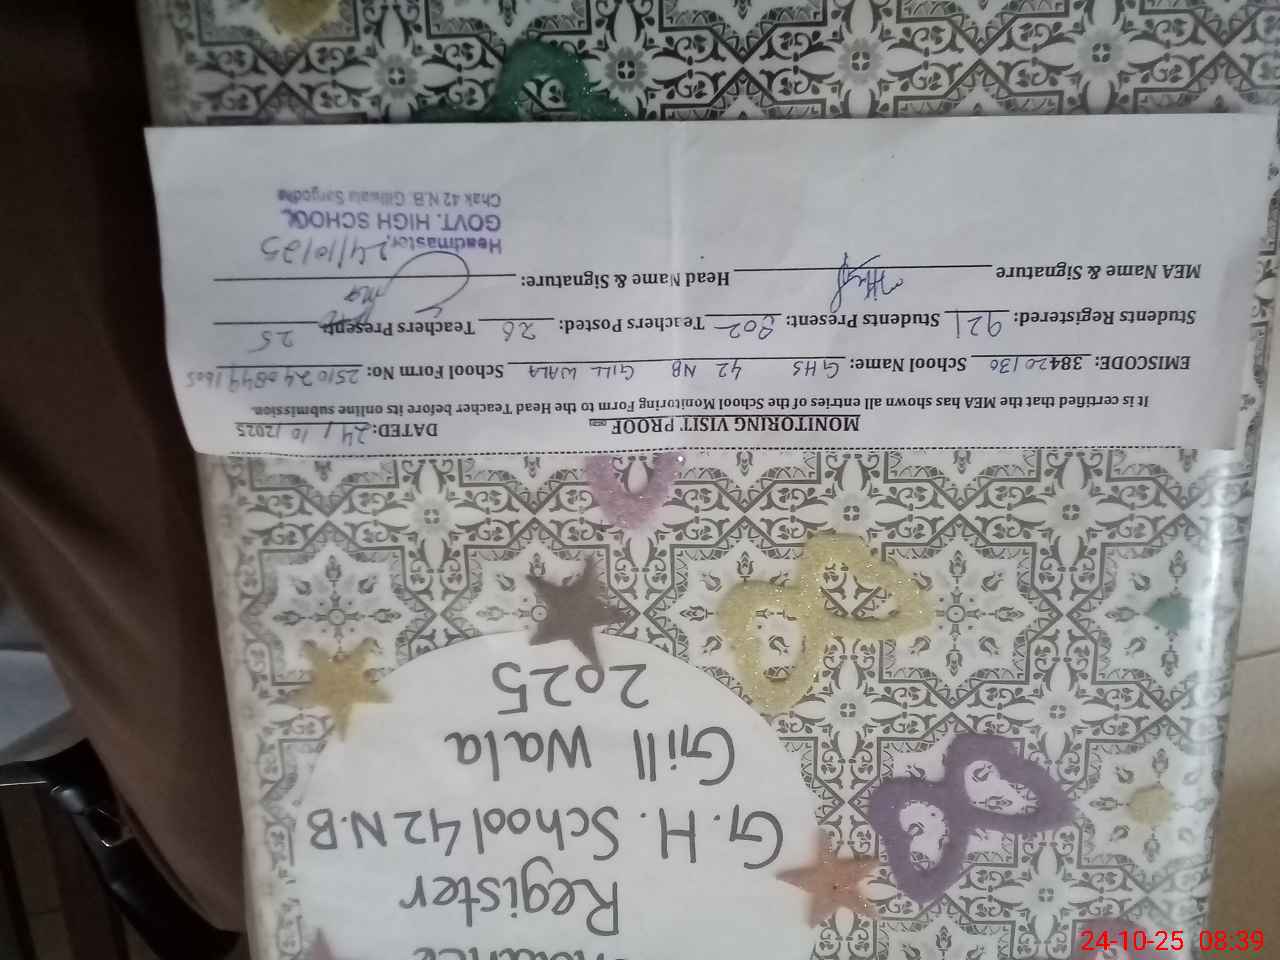 MONITORING VISIT PROOF
DATED: 24 / 10 /2025
It is certified that the MEA has shown all entries of the School Monitoring Form to the Head Teacher before its online submission.
EMISCODE: 38420130 School Name: GHS 42 NB GILL WALA School Form No:
Students Registered: 921 Students Present: 802 Teachers Posted: 26 Teachers Present: 25
MEA Name & Signature Head Name & Signature:
24/10/25
Headmaster,
GOVT. HIGH SCHOOL
Chak 42 N.B. Gillwala Sargodha
Register
G.H. School 42 N.B
Gill Wala
2025
24-10-25 08:39